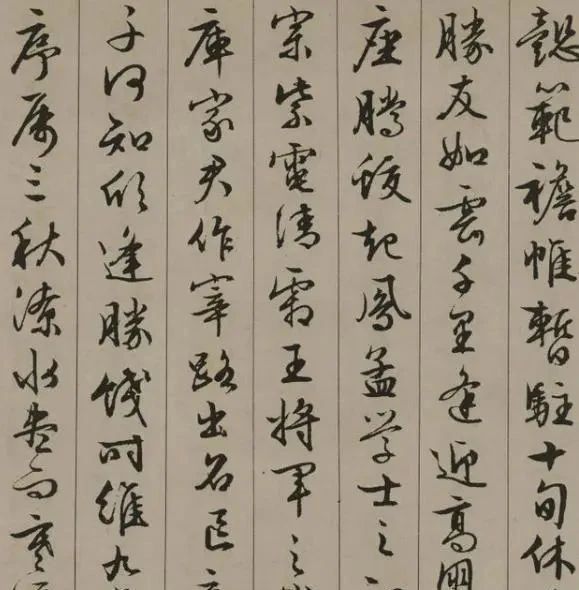 懿範襜帷暫駐十旬休
勝友如雲千里逢迎高朋
座騰蛟起鳳孟學士之
宗紫電清霜王將軍之
庫家君作宰路出名區
子何知欣逢勝餞時維九
序屬三秋潦水盡而寒